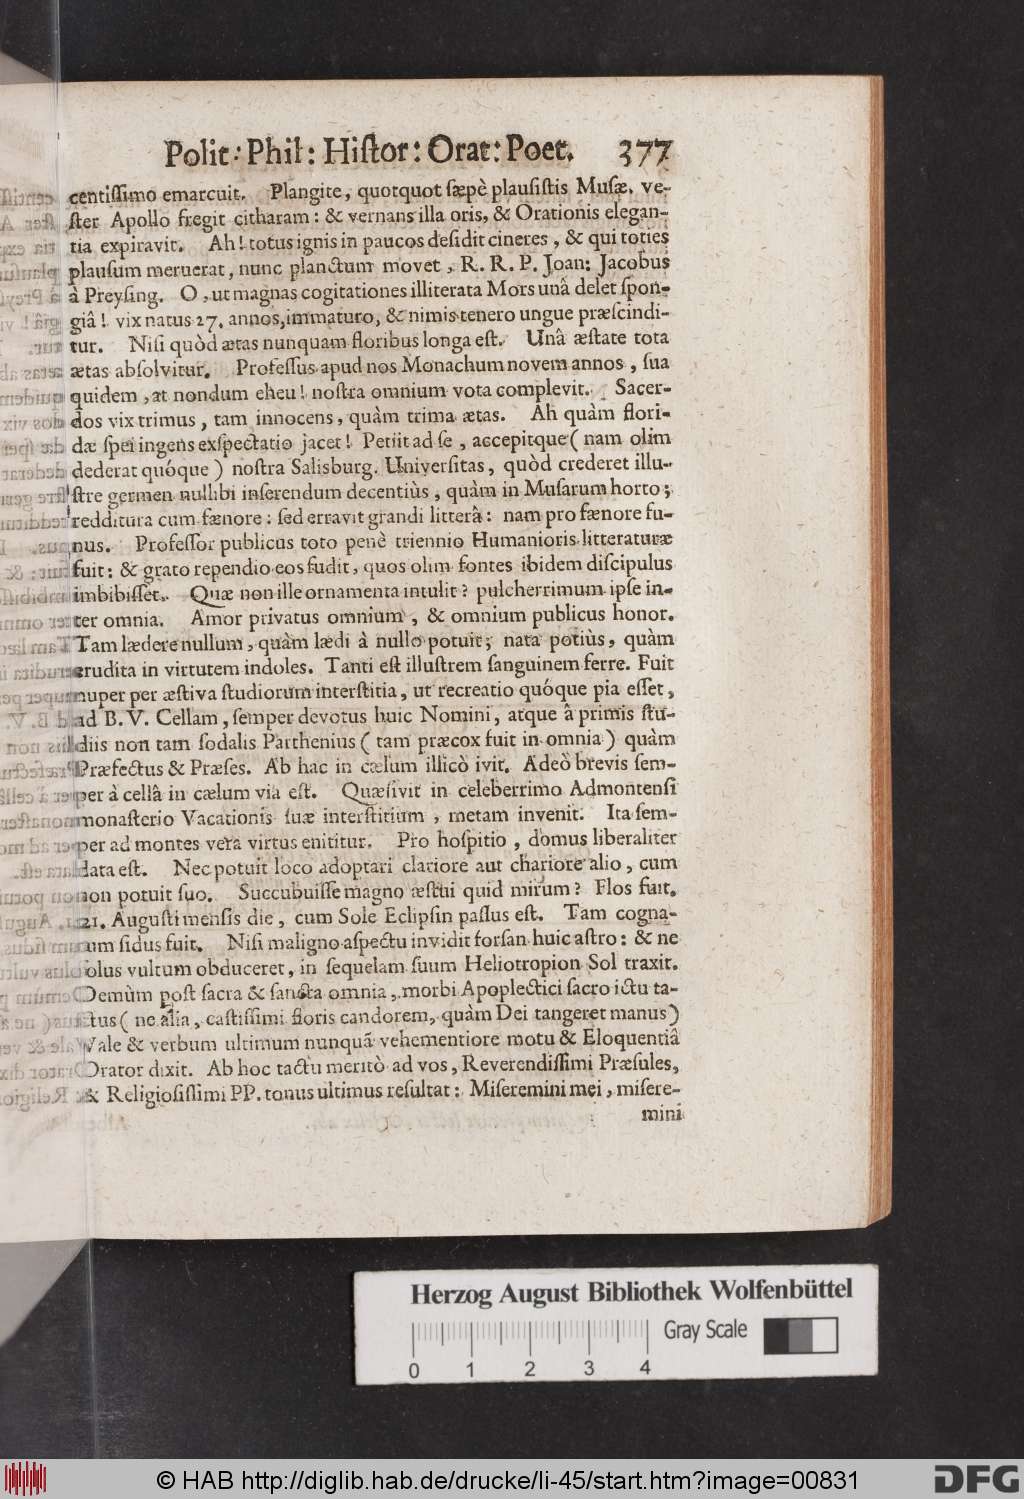 Polit: Phil: Histor: Orat: Poet. 377
centissimo emarcuit. Plangite, quotquot sæpè plausistis Musæ, ve-
ster Apollo fregit citharam: & vernans illa oris, & Orationis elegan-
tia expiravit. Ah! totus ignis in paucos desidit cineres, & qui toties
plausum meruerat, nunc planctum movet, R. R. P. Joan: Jacobus
à Preysing. O, ut magnas cogitationes illiterata Mors unâ delet spon-
giâ! vix natus 27. annos, immaturo, & nimis tenero ungue præscindi-
tur. Nisi quòd ætas nunquam floribus longa est. Unâ æstate tota
ætas absolvitur. Professus apud nos Monachum novem annos, sua
quidem, at nondum eheu! nostra omnium vota complevit. Sacer-
dos vix trimus, tam innocens, quàm trima ætas. Ah quàm flori-
dæ spei ingens exspectatio jacet! Petiit ad se, accepitque (nam olim
dederat quóque) nostra Salisburg. Universitas, quòd crederet illu-
stre germen nullibi inserendum decentiùs, quàm in Musarum horto;
redditura cum fænore: sed erravit grandi litterâ: nam pro fænore fu-
nus. Professor publicus toto penè triennio Humanioris litteraturæ
fuit: & grato rependio eos fudit, quos olim fontes ibidem discipulus
imbibisset. Quæ non ille ornamenta intulit? pulcherrimum ipse in-
ter omnia. Amor privatus omnium, & omnium publicus honor.
Tam lædere nullum, quàm lædi à nullo potuit; nata potiùs, quàm
erudita in virtutem indoles. Tanti est illustrem sanguinem ferre. Fuit
nuper per æstiva studiorum interstitia, ut recreatio quóque pia esset,
ad B. V. Cellam, semper devotus huic Nomini, atque â primis stu-
diis non tam sodalis Parthenius (tam præcox fuit in omnia) quàm
Præfectus & Præses. Ab hac in cælum illicò ivit. Adeò brevis sem-
per à cellâ in cælum via est. Quæsivit in celeberrimo Admontensi
monasterio Vacationis suæ interstitium, metam invenit. Ita sem-
per ad montes vera virtus enititur. Pro hospitio, domus liberaliter
data est. Nec potuit loco adoptari clariore aut chariore alio, cum
non potuit suo. Succubuisse magno æstui quid mirum? Flos fuit.
21. Augusti mensis die, cum Sole Eclipsin passus est. Tam cogna-
um sidus fuit. Nisi maligno aspectu invidit forsan huic astro: & ne
olus vultum obduceret, in sequelam suum Heliotropion Sol traxit.
Demùm post sacra & sancta omnia, morbi Apoplectici sacro ictu ta-
ctus (ne alia, castissimi floris candorem, quàm Dei tangeret manus)
Vale & verbum ultimum nunquã vehementiore motu & Eloquentiâ
Orator dixit. Ab hoc tactu meritò ad vos, Reverendissimi Præsules,
& Religiosissimi PP. tonus ultimus resultat: Miseremini mei, misere-
mini
Herzog August Bibliothek Wolfenbüttel
Gray Scale
0 1 2 3 4
© HAB http://diglib.hab.de/drucke/li-45/start.htm?image=00831
DFG